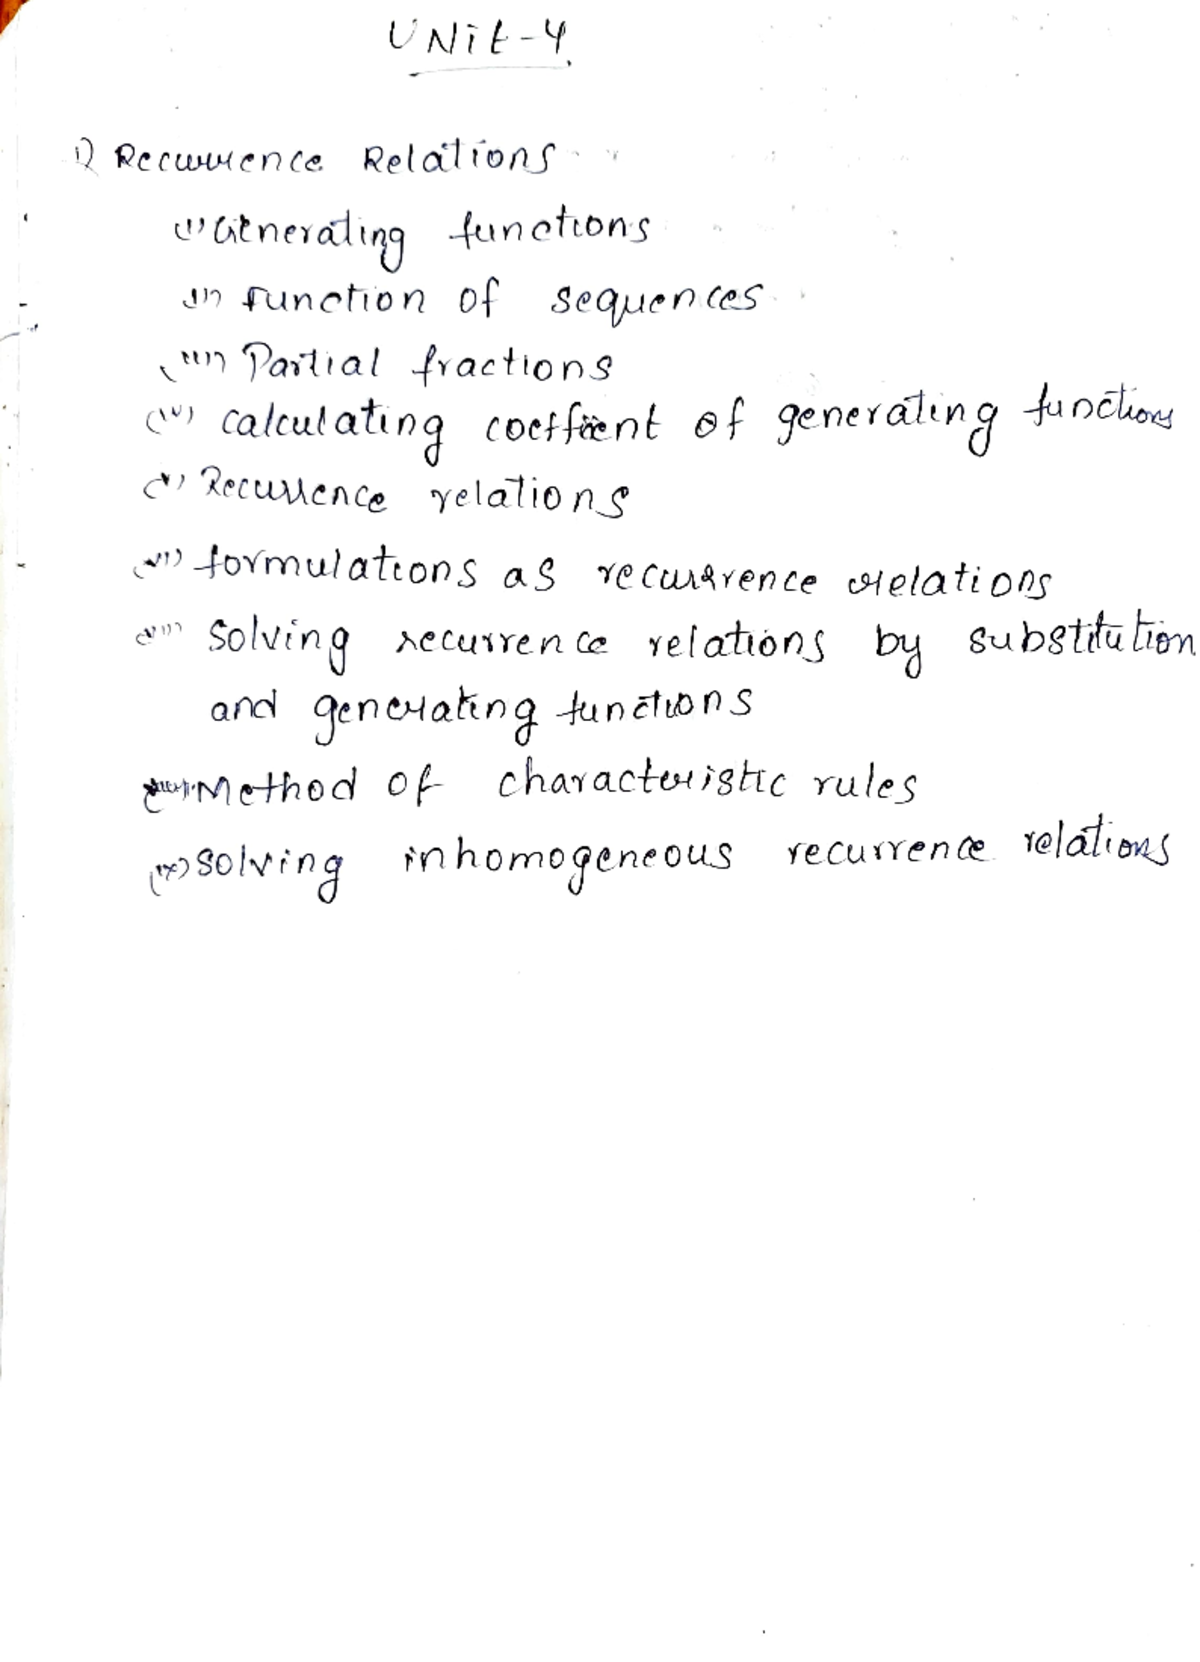 UNit-4
1) Recurrence Relations
(i) Generating functions
(ii) function of sequences
(iii) Partial fractions
(iv) calculating coefficient of generating functions
(v) Recurrence relations
(vi) formulations as recurrence relations
(vii) Solving recurrence relations by substitution
and generating functions
(viii) Method of characteristic rules
(ix) Solving inhomogeneous recurrence relations